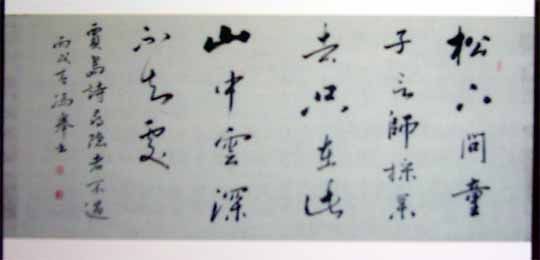 松下問童
子言師採藥
去只在此
山中雲深
不知處
賈島詩尋隱者不遇
丙戌 馮 書